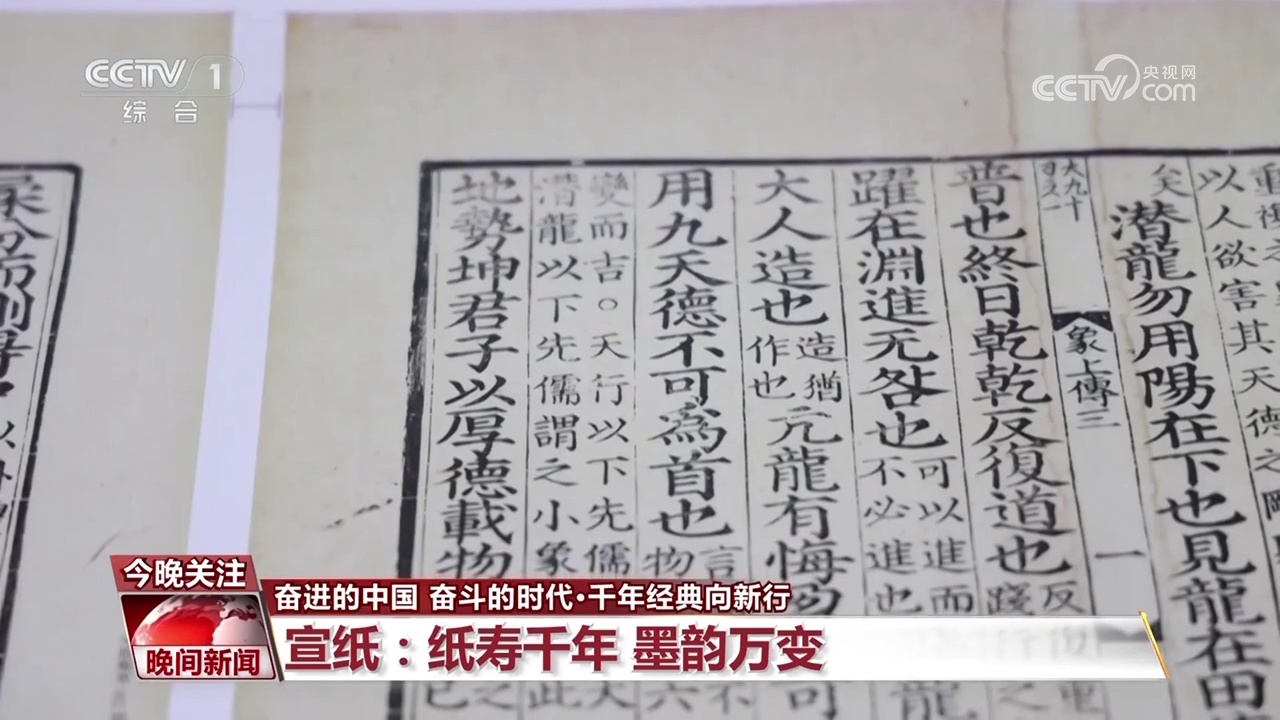 CCTV 1
综合
央视网
CCTV.com
以人欲害其天德之
矣 潜龍勿用陽在下也見龍在田
象上傳三
一
普也終日乾乾反復道也
躍在淵進无咎也 可以進而 不必進也
大人造也 造猶 作也 亢龍有悔
用九天德不可為首也
變而吉○天行以下先儒
潛龍以下先儒謂之小象此
地勢坤君子以厚德載物
今晚关注
奋进的中国 奋斗的时代·千年经典向新行
晚间新闻
宣纸：纸寿千年 墨韵万变